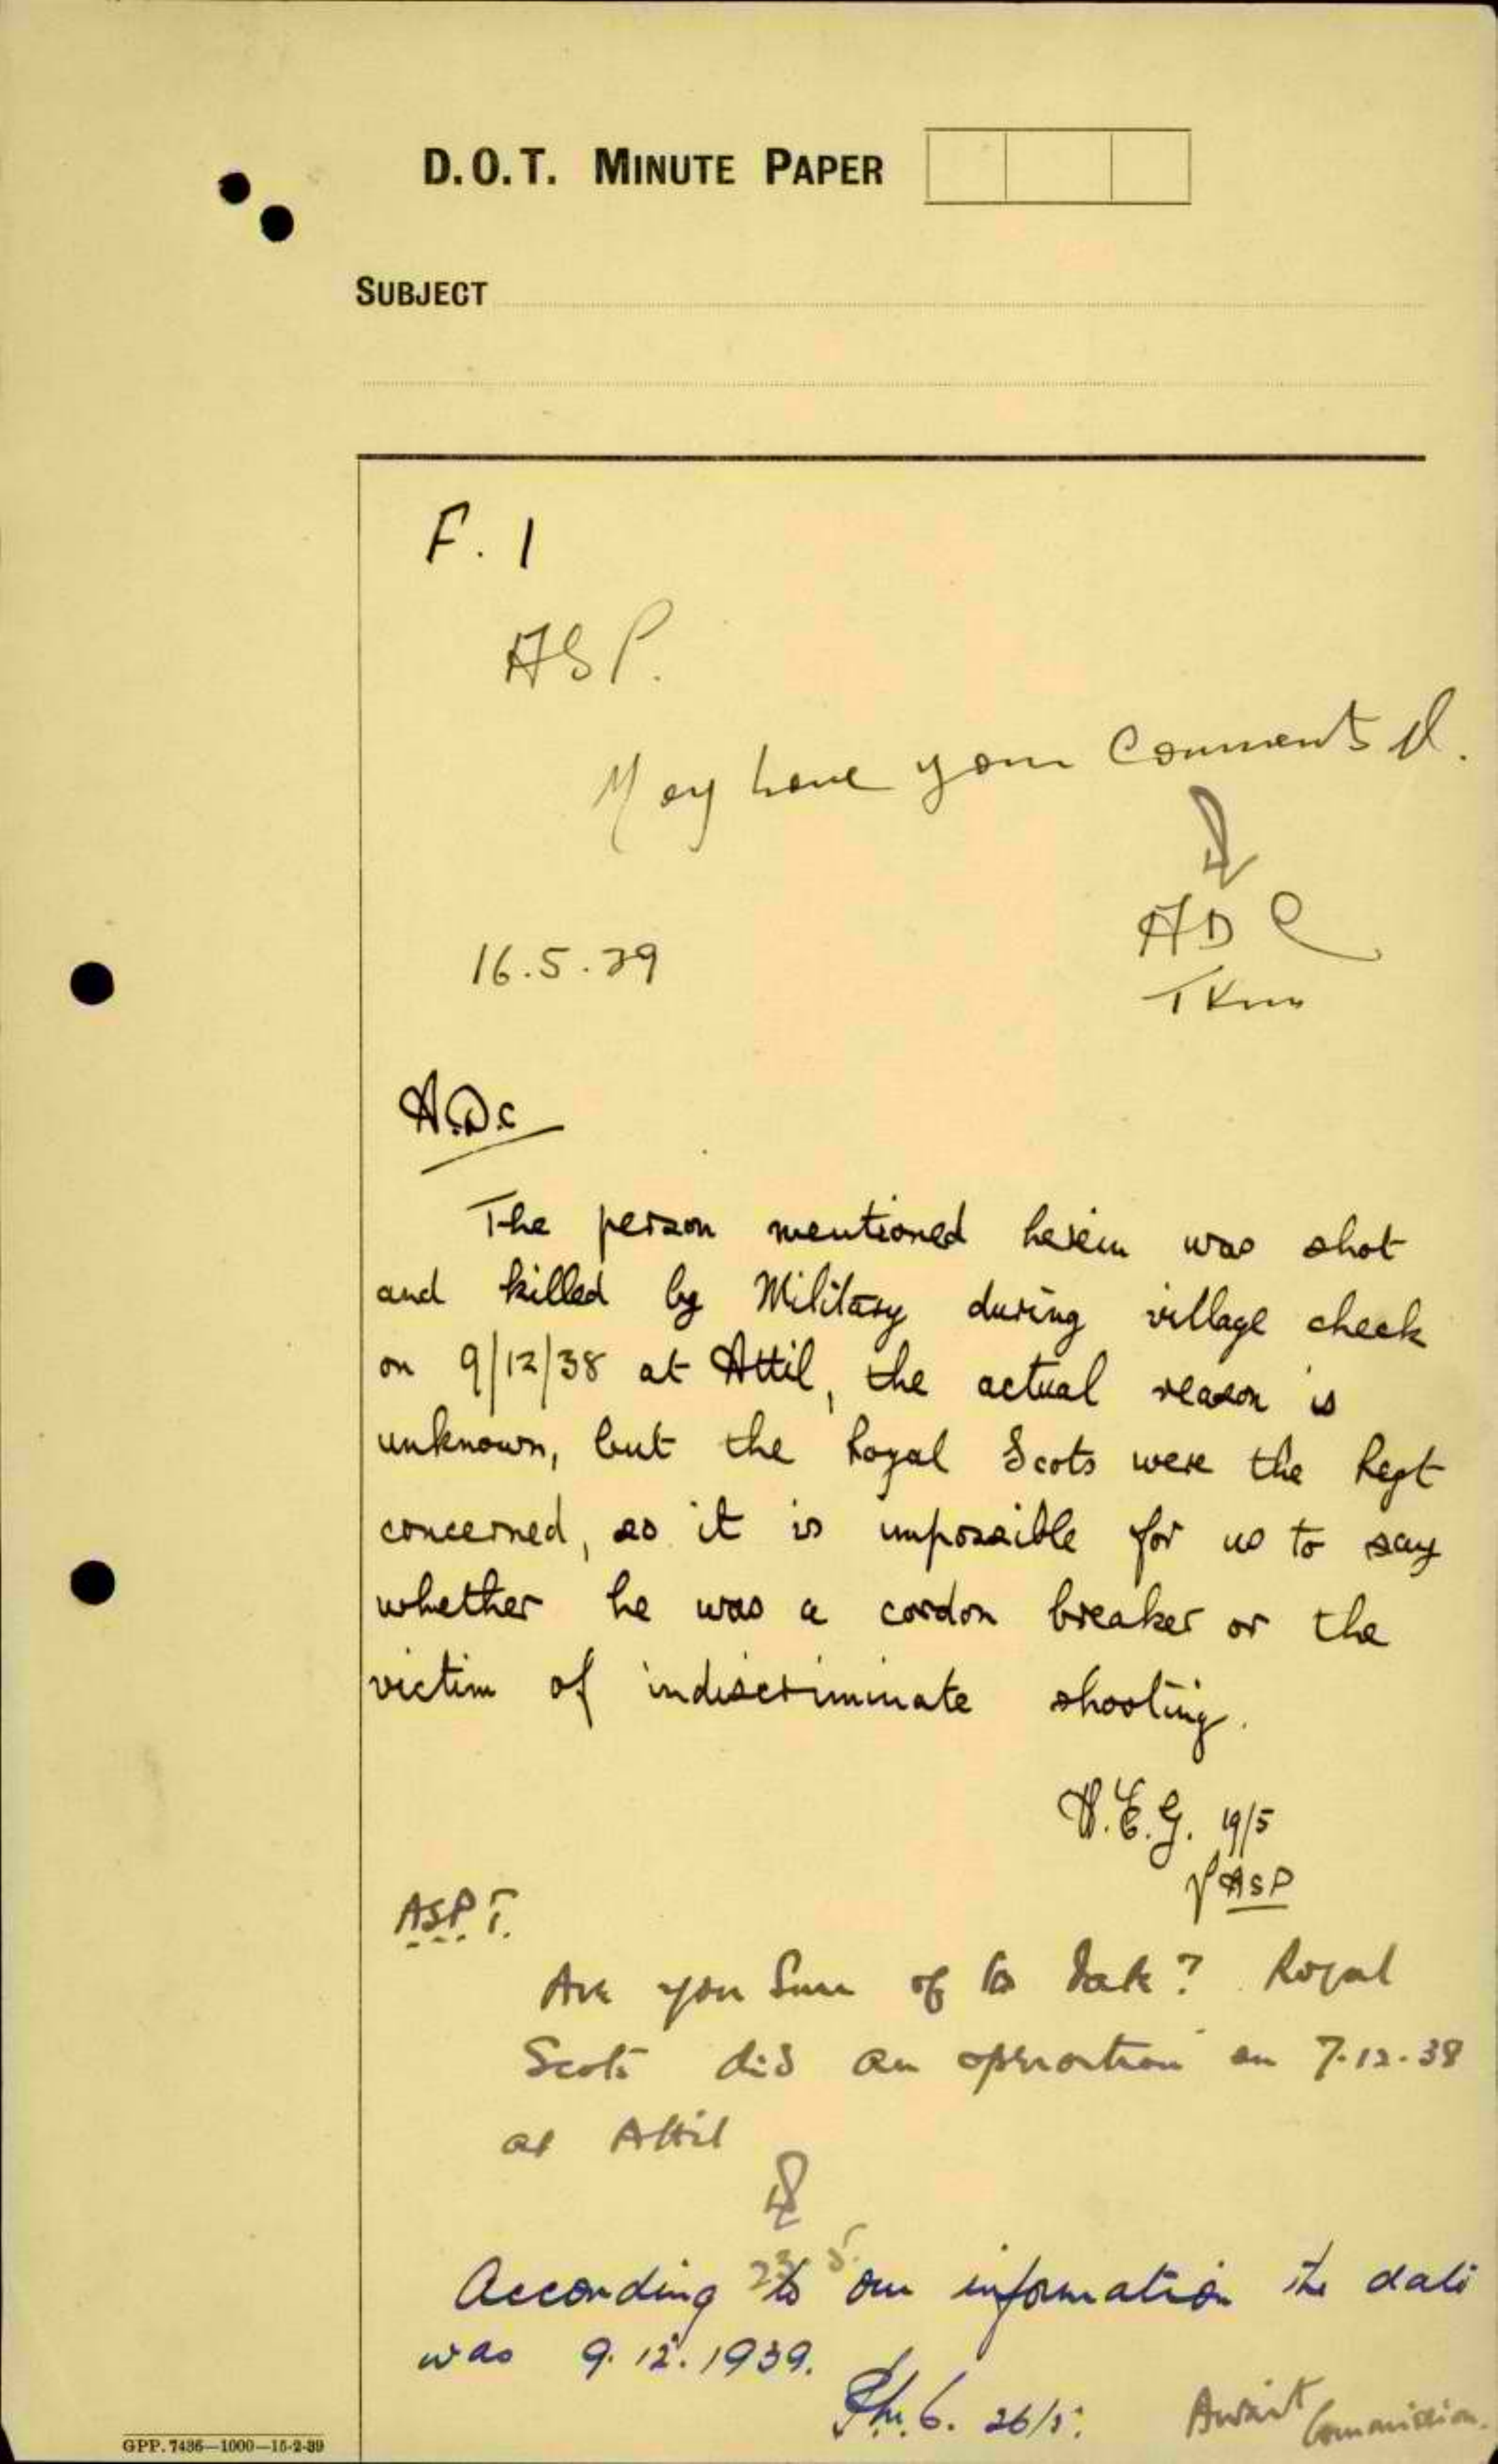 D.O.T. MINUTE PAPER
SUBJECT
F. 1
ASP.
May have your Comments
ADC
TKm
16.5.39
A.D.C
The person mentioned herein was shot
and killed by Military during village check
on 9/12/38 at Attil, the actual reason is
unknown, but the Royal Scots were the Regt
concerned, so it is impossible for us to say
whether he was a cordon breaker or the
victim of indiscriminate shooting.
H.E.G. 19/5
ASP
ASP T.
Are you Sure of the Date? Royal
Scots did an operation on 7.12.38
at Attil
23 5.
According to our information the date
was 9.12.1939.
26/5.
Await Commission.
GPP. 7436—1000—15-2-39